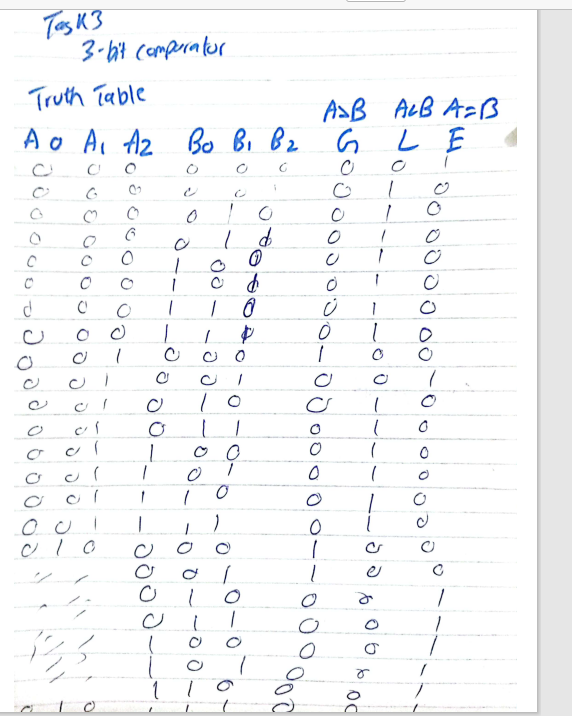 Task 3
3-bit comperator
Truth Table
A>B A<B A=B
A0 A1 A2 B0 B1 B2 G L E
0 0 0 0 0 0 0 0 1
0 0 0 0 0 1 0 1 0
0 0 0 0 1 0 0 1 0
0 0 0 0 1 0 1 0
0 0 0 1 0 0 0 1 0
0 0 0 1 0 0 1 0
0 0 0 1 1 0 0 1 0
0 0 0 1 1 0 1 0
0 0 1 0 0 0 1 0 0
0 0 1 0 0 1 0 0 1
0 0 1 0 1 0 0 1 0
0 0 1 0 1 1 0 1 0
0 0 1 1 0 0 0 1 0
0 0 1 1 0 1 0 1 0
0 0 1 1 1 0 0 1 0
0 0 1 1 1 1 0 1 0
0 1 0 0 0 0 1 0 0
0 0 1 1 0 0
0 1 0 0 0 1
0 1 1 0 0 1
1 0 0 0 0 1
1 0 1 0 0 1
1 1 0 0 0 1
0 1 0 1 1 1 0 0 1